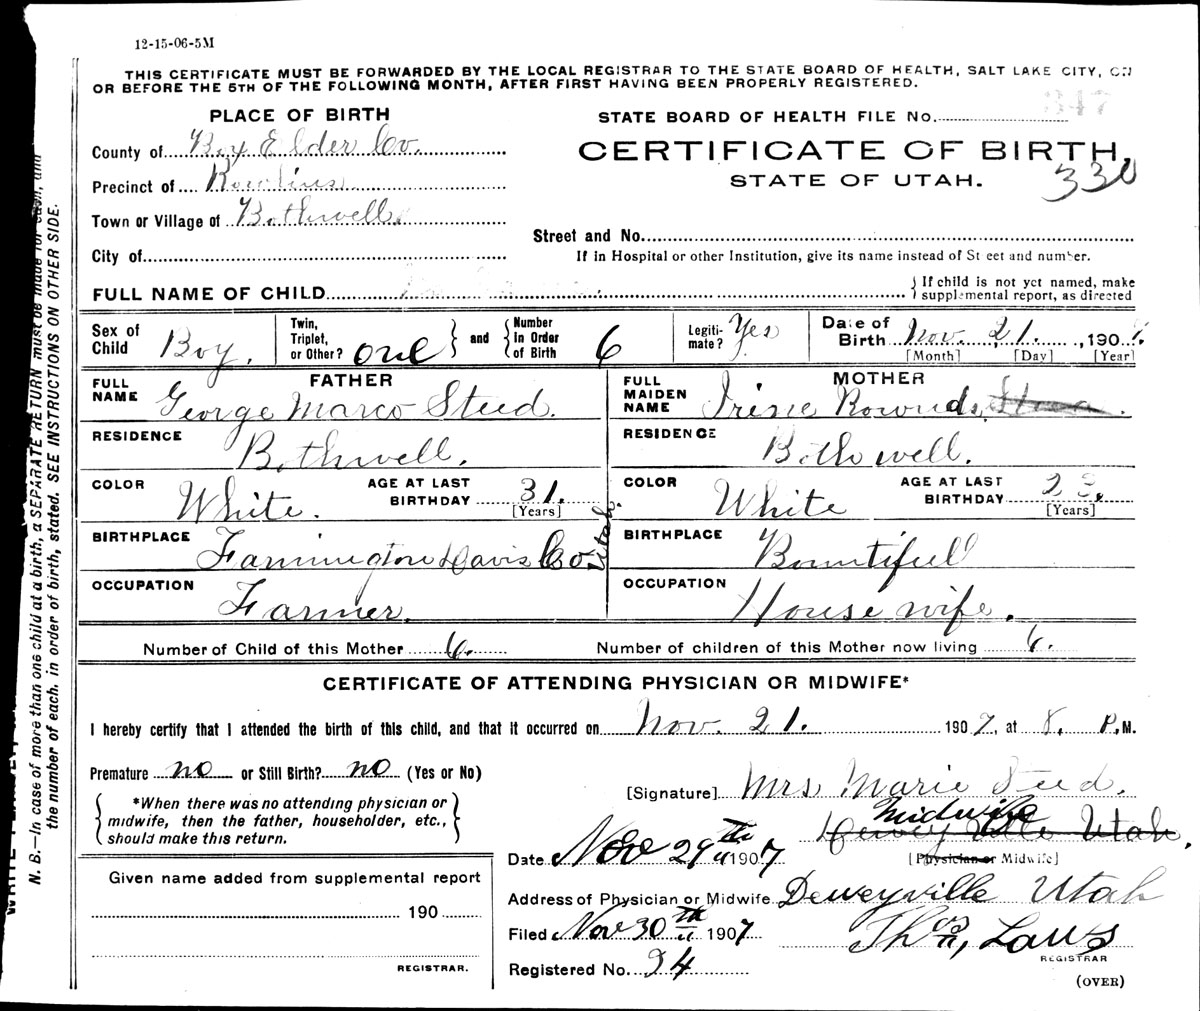 12-15-06-5M
THIS CERTIFICATE MUST BE FORWARDED BY THE LOCAL REGISTRAR TO THE STATE BOARD OF HEALTH, SALT LAKE CITY, ON
OR BEFORE THE 5TH OF THE FOLLOWING MONTH, AFTER FIRST HAVING BEEN PROPERLY REGISTERED.
347
PLACE OF BIRTH
STATE BOARD OF HEALTH FILE No.
County of Box Elder Co.
CERTIFICATE OF BIRTH,
Precinct of
STATE OF UTAH.
330
Town or Village of Bothwell
Street and No.
City of
If in Hospital or other Institution, give its name instead of Street and number.
FULL NAME OF CHILD
If child is not yet named, make
supplemental report, as directed
Sex of Child Boy.
Twin, Triplet, or Other? one and Number in Order of Birth 6
Legiti- mate? Yes
Date of Birth Nov. 21., 1907.
[Month] [Day] [Year]
FATHER
FULL NAME George Marco Steed.
MOTHER
FULL MAIDEN NAME Irene Rownds
RESIDENCE Bothwell.
RESIDENCE Bothwell.
COLOR White. AGE AT LAST BIRTHDAY 31. [Years]
COLOR White AGE AT LAST BIRTHDAY [Years]
BIRTHPLACE Farmington Davis Co Utah.
BIRTHPLACE Bountiful
OCCUPATION Farmer.
OCCUPATION House wife.
Number of Child of this Mother 6.
Number of children of this Mother now living 6.
CERTIFICATE OF ATTENDING PHYSICIAN OR MIDWIFE*
I hereby certify that I attended the birth of this child, and that it occurred on Nov. 21. 1907, at 8. P.M.
Premature no or Still Birth? no (Yes or No)
[Signature] Mrs Marie Steed.
*When there was no attending physician or
midwife, then the father, householder, etc.,
should make this return.
Midwife
Utah.
Date Nov 29th 1907
[Physician or Midwife]
Given name added from supplemental report
190
REGISTRAR.
Address of Physician or Midwife Deweyville Utah
Filed Nov 30th 1907
Thos, Laws
REGISTRAR
Registered No. 94
(OVER)
N. B.—In case of more than one child at a birth, a SEPARATE RETURN must be made for each, and
the number of each, in order of birth, stated. SEE INSTRUCTIONS ON OTHER SIDE.